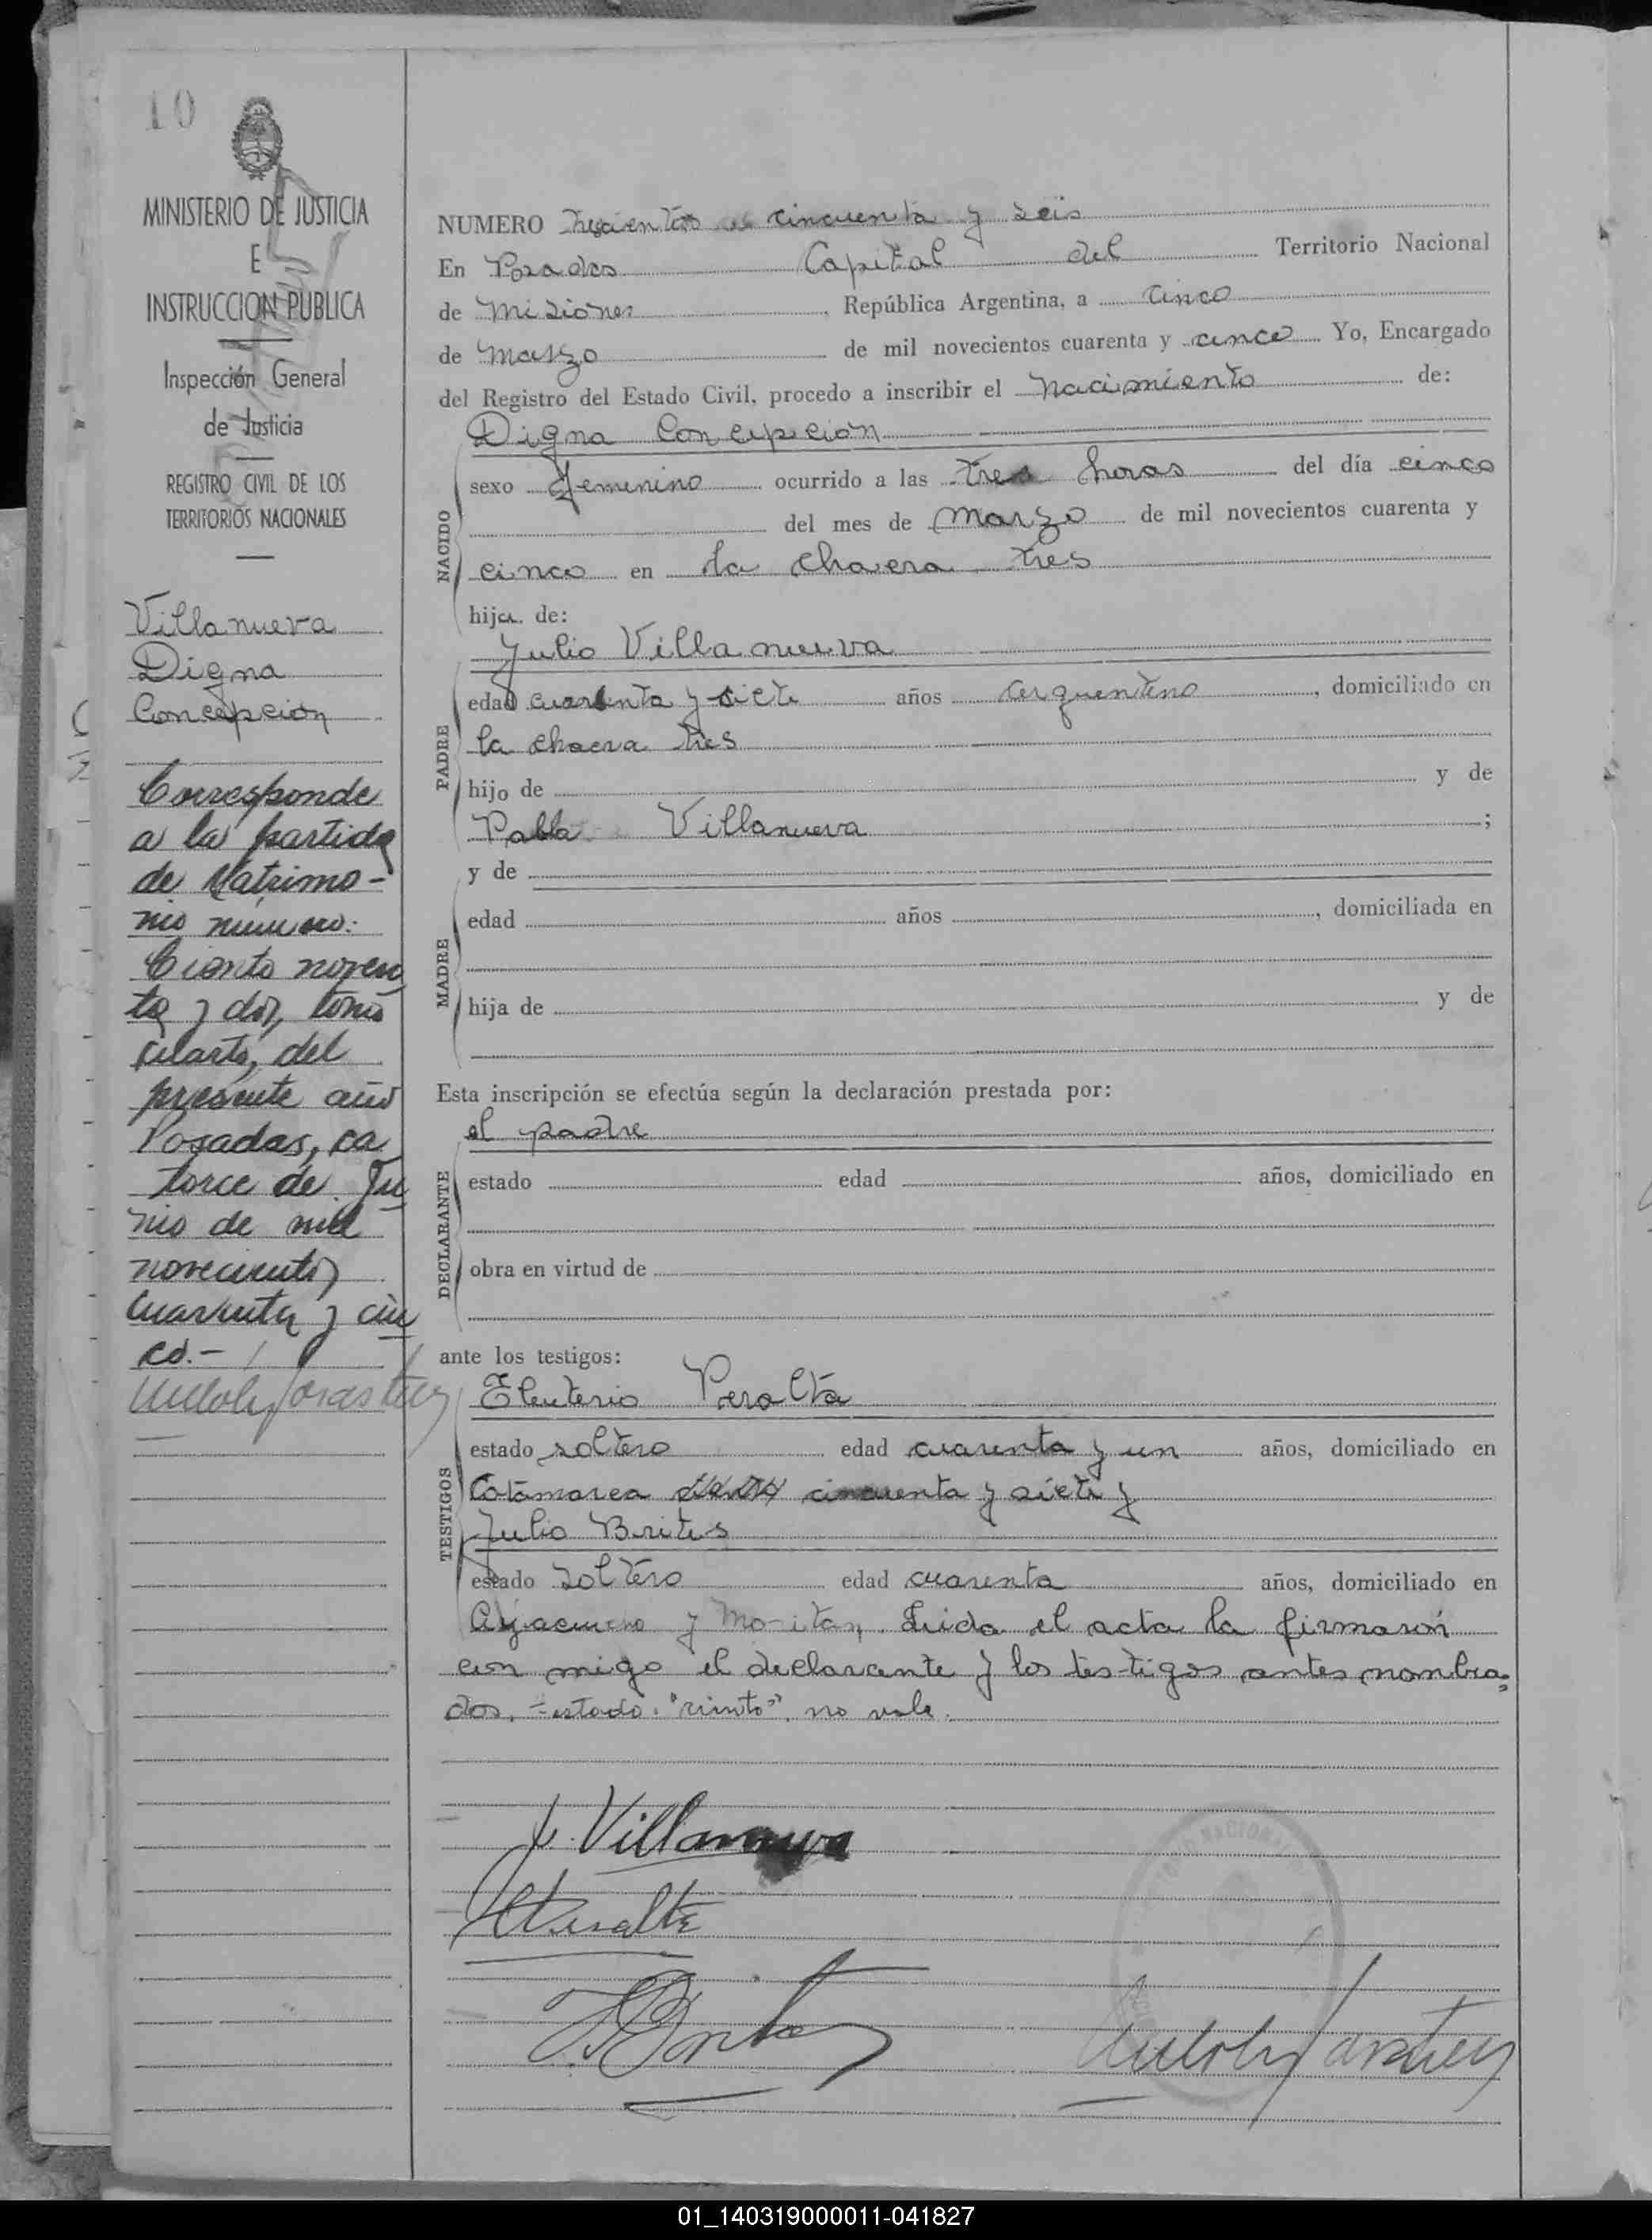 10
MINISTERIO DE JUSTICIA
E
INSTRUCCION PUBLICA
Inspección General
de Justicia
REGISTRO CIVIL DE LOS
TERRITORIOS NACIONALES
Villanueva
Digna
Concepción
Corresponde
a la partida
de Matrimo-
nio número:
Ciento noven
ta y dos, tomo
cuarto, del
presente año
Posadas, ca
torce de Ju
nio de mil
novecientos
cuarenta y cin
co.-
NUMERO Trescientos cincuenta y seis
En Posadas Capital del Territorio Nacional
de Misiones, República Argentina, a cinco
de marzo de mil novecientos cuarenta y cinco Yo, Encargado
del Registro del Estado Civil, procedo a inscribir el nacimiento de:
Digna Concepción
NACIDO
sexo femenino ocurrido a las tres horas del día cinco
del mes de marzo de mil novecientos cuarenta y
cinco en la chacra tres
hija de:
Julio Villanueva
PADRE
edad cuarenta y siete años argentino, domiciliado en
la chacra tres
hijo de y de
Pabla Villanueva;
y de
MADRE
edad años, domiciliada en
hija de y de
Esta inscripción se efectúa según la declaración prestada por:
el padre
DECLARANTE
estado edad años, domiciliado en
obra en virtud de
ante los testigos:
Eleuterio Peralta
TESTIGOS
estado soltero edad cuarenta y un años, domiciliado en
Catamarca ciento cincuenta y siete y
Julio Brites
estado soltero edad cuarenta años, domiciliado en
Ayacucho y Leida el acta la firmaron
con migo el declarante y los testigos antes nombra-
dos. Testado: "ciento", no vale.
J. Villanueva
Peralta
J Brites
01_140319000011-041827